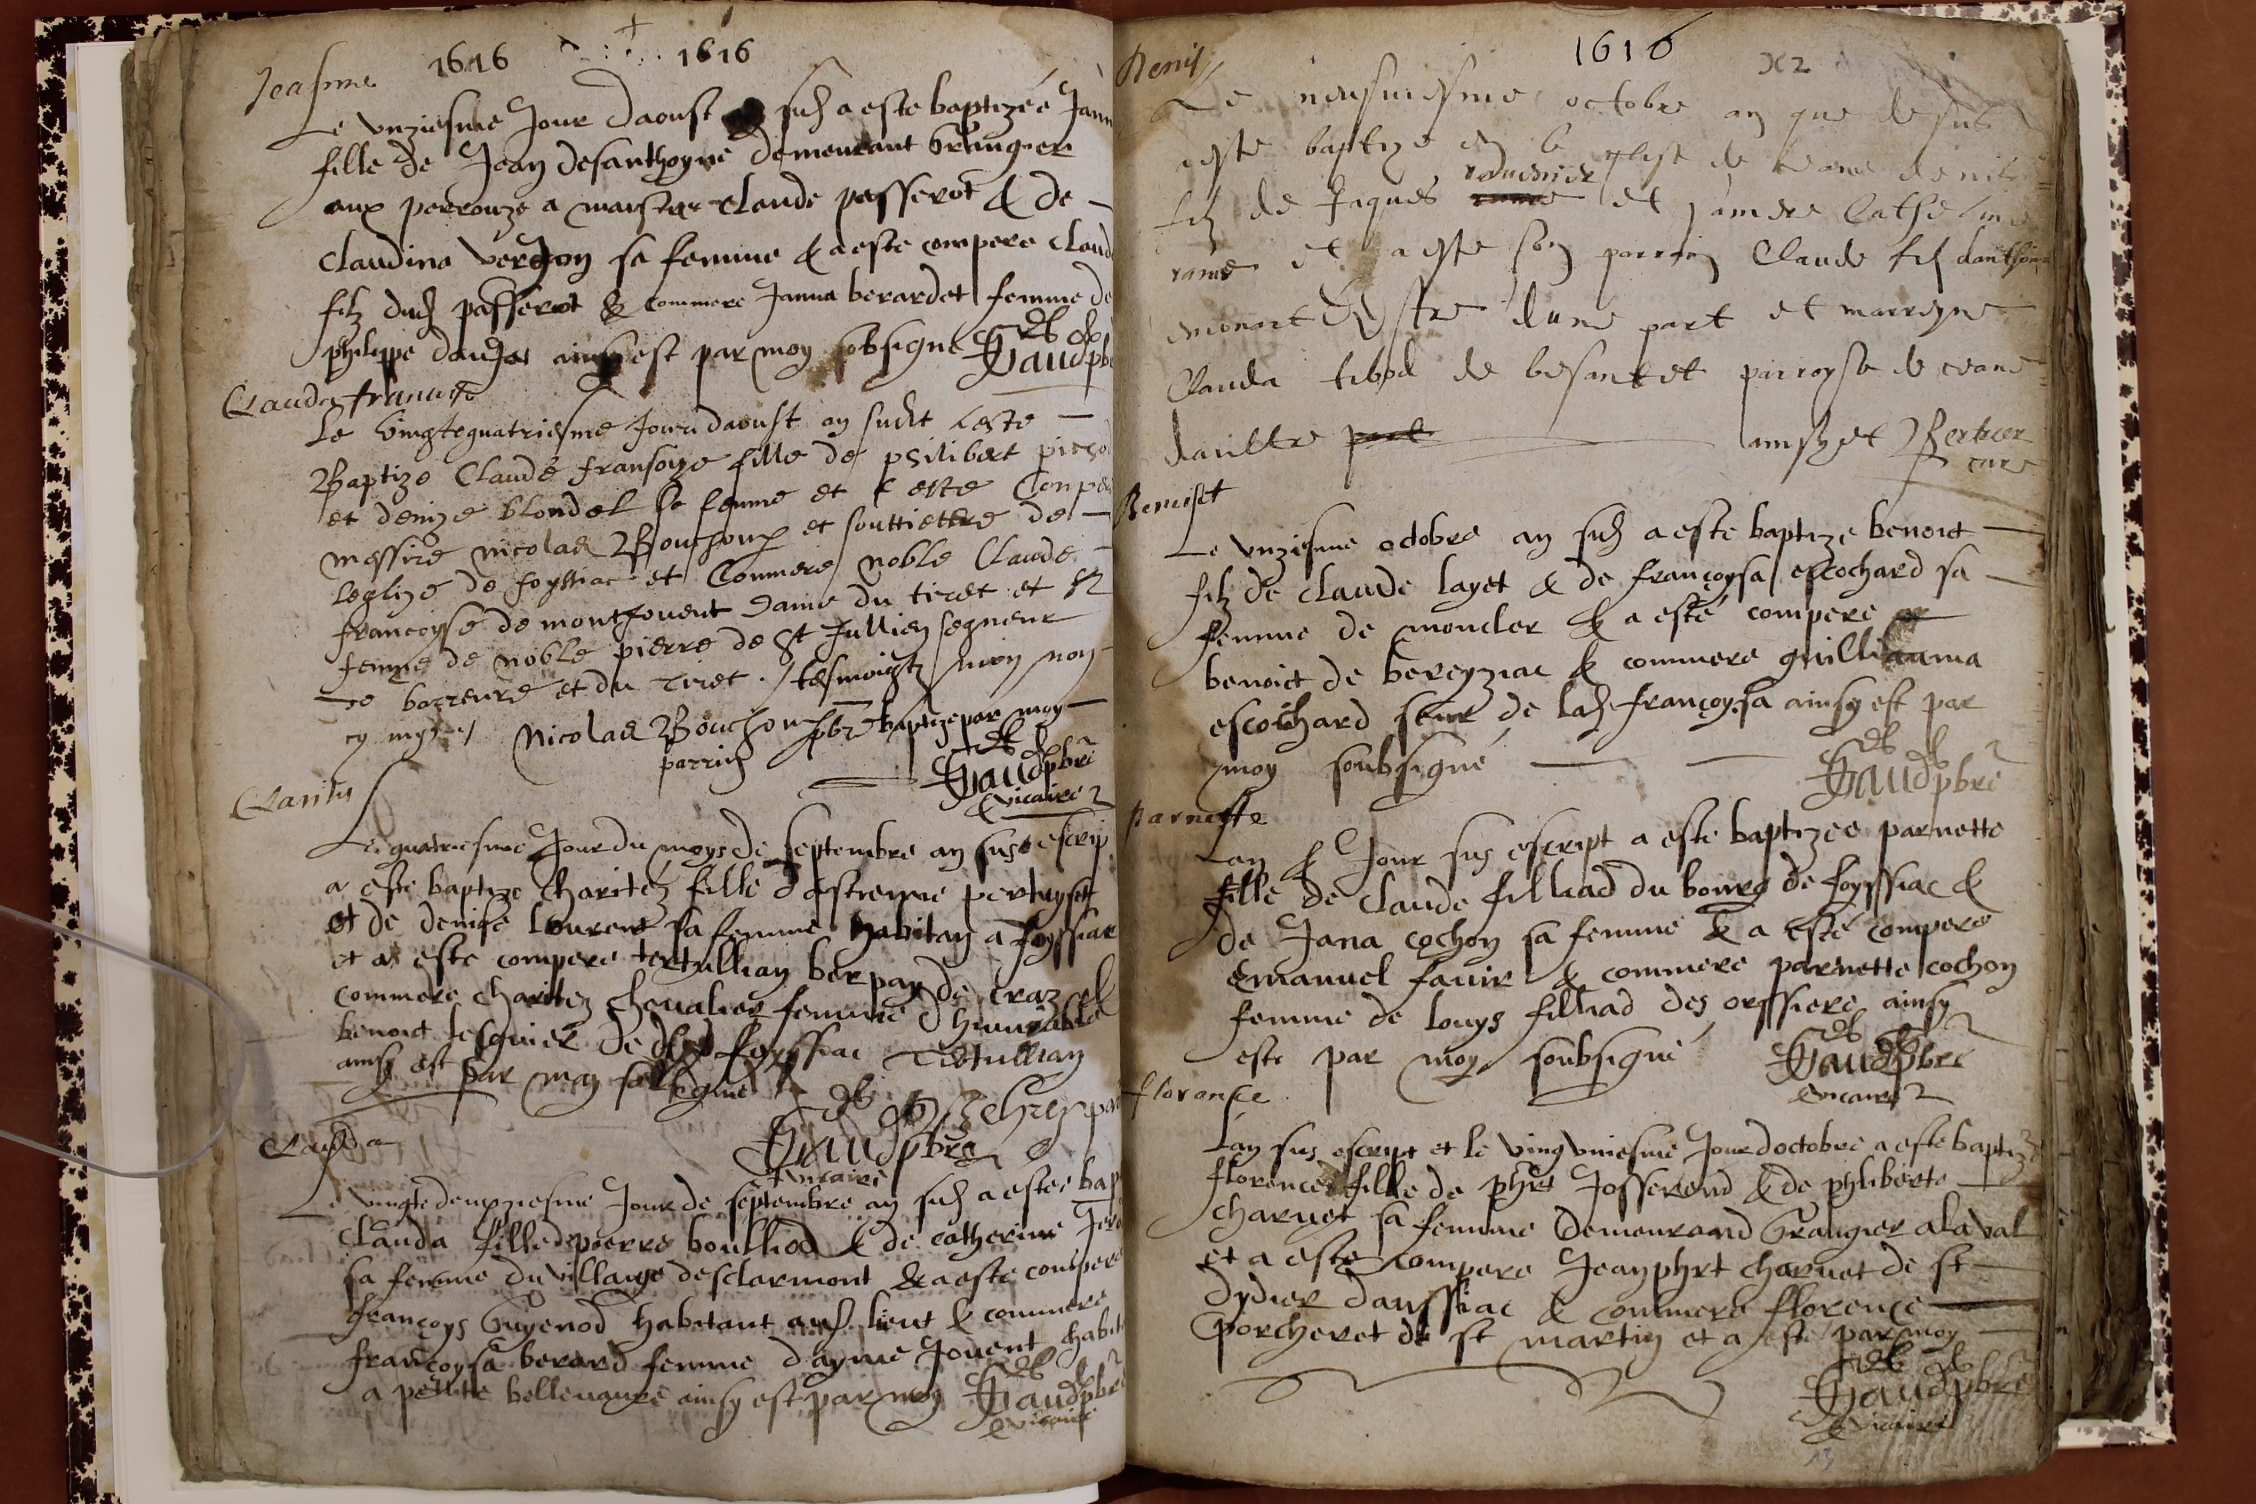 1616 1616
Jeasme
Le unziesme Jour daoust sus a este baptizée Jann
fille de Jean desanthoyne demeurant Grangier
aux perrouze a maistre claude passerot & de
claudina vergon sa femme & a este compere claud
filz dud passerot & commere Janna berardet femme de
philippe daujat ainsy est par moy sobsigne
Gaud pbre
Clauda francoise
Le vingtequatriesme Jour daoust an susdt a este
Baptize Claude fransoize fille de philibert
et denize blondel sa femme et a este Compere
messire nicolas Bouchoux et souttiettre de
leglize de foyssiac et Commere noble Claude
francoyse de montjouent Dame du tiret et
femme de noble pierre de St Jullien segneur
de barreure et du Tiret . / tesmoigtz mon nom
cy mys / Nicolas Bouchoux pbr baptize par moy
parrin
Gaud pbre
vicaire
Caritas
Le quatriesme Jour du moys de septembre an sus escrip
a este baptize charitéz fille d'astienne pertuyset
et de denise lourent sa femme habitan a foyssiac
et a este compere tertullian berpay de craz et
commere charitez chevalier femme d'hunorable
benoict lesquier de foyssiac Tertullian
ainsy est par moy sobsigne
Gaud pbre
vicaire
Clauda
Le vingte deuxziesme Jour de septembre an sus a este bap
Clauda fille de pierre boulliod & de catherine
sa femme du villaige desclarmont & a este compere
françoys Guyenod habitant aud lieut & commere
françoysa berard femme d'ayme Jouent habit
a petitte bellevavre ainsy est par moy
Gaud pbre
vicaire
1616
X2
Denis
Le neufviesme octobre an que desus
a este baptize en l eglise de ceans denis
filz de Jaques et damere Catheline
rame et a este son parrin Claude filz danthoine
dune part et marreyne
Clauda tibod de besantet parroyse de ceans
daultre part ainsy est Bertier
cure
Benoist
Le unziesme octobre an sus a este baptize benoict
filz de claude layet & de françoysa escochard sa
femme de moncler & a esté compere
benoict de bereyziac & commere guillauma
escochard seur de lad françoysa ainsy est par
moy soubsigné
Gaud pbre
parnette
Lan & Jour sus escript a este baptizee parnette
fille de claude filliad du bourg de foyssiac &
de Jana cochon sa femme & a esté compere
emanuel favir & commere parnette cochon
femme de louys filliad des orssiere ainsy
este par moy soubsigné
Gaud pbre
vicaire
floranse
Lan sus escript et le ving uniesme Jour doctobre a este baptize
florence fille de phrt Josserand & de phliberte
charvet sa femme demeurand Grangier a la val
et a este compere Jean phrt charvet de st
dydier daussiac & commere florence
porcheret de st martin et a este par moy
Gaud pbre
vicaire